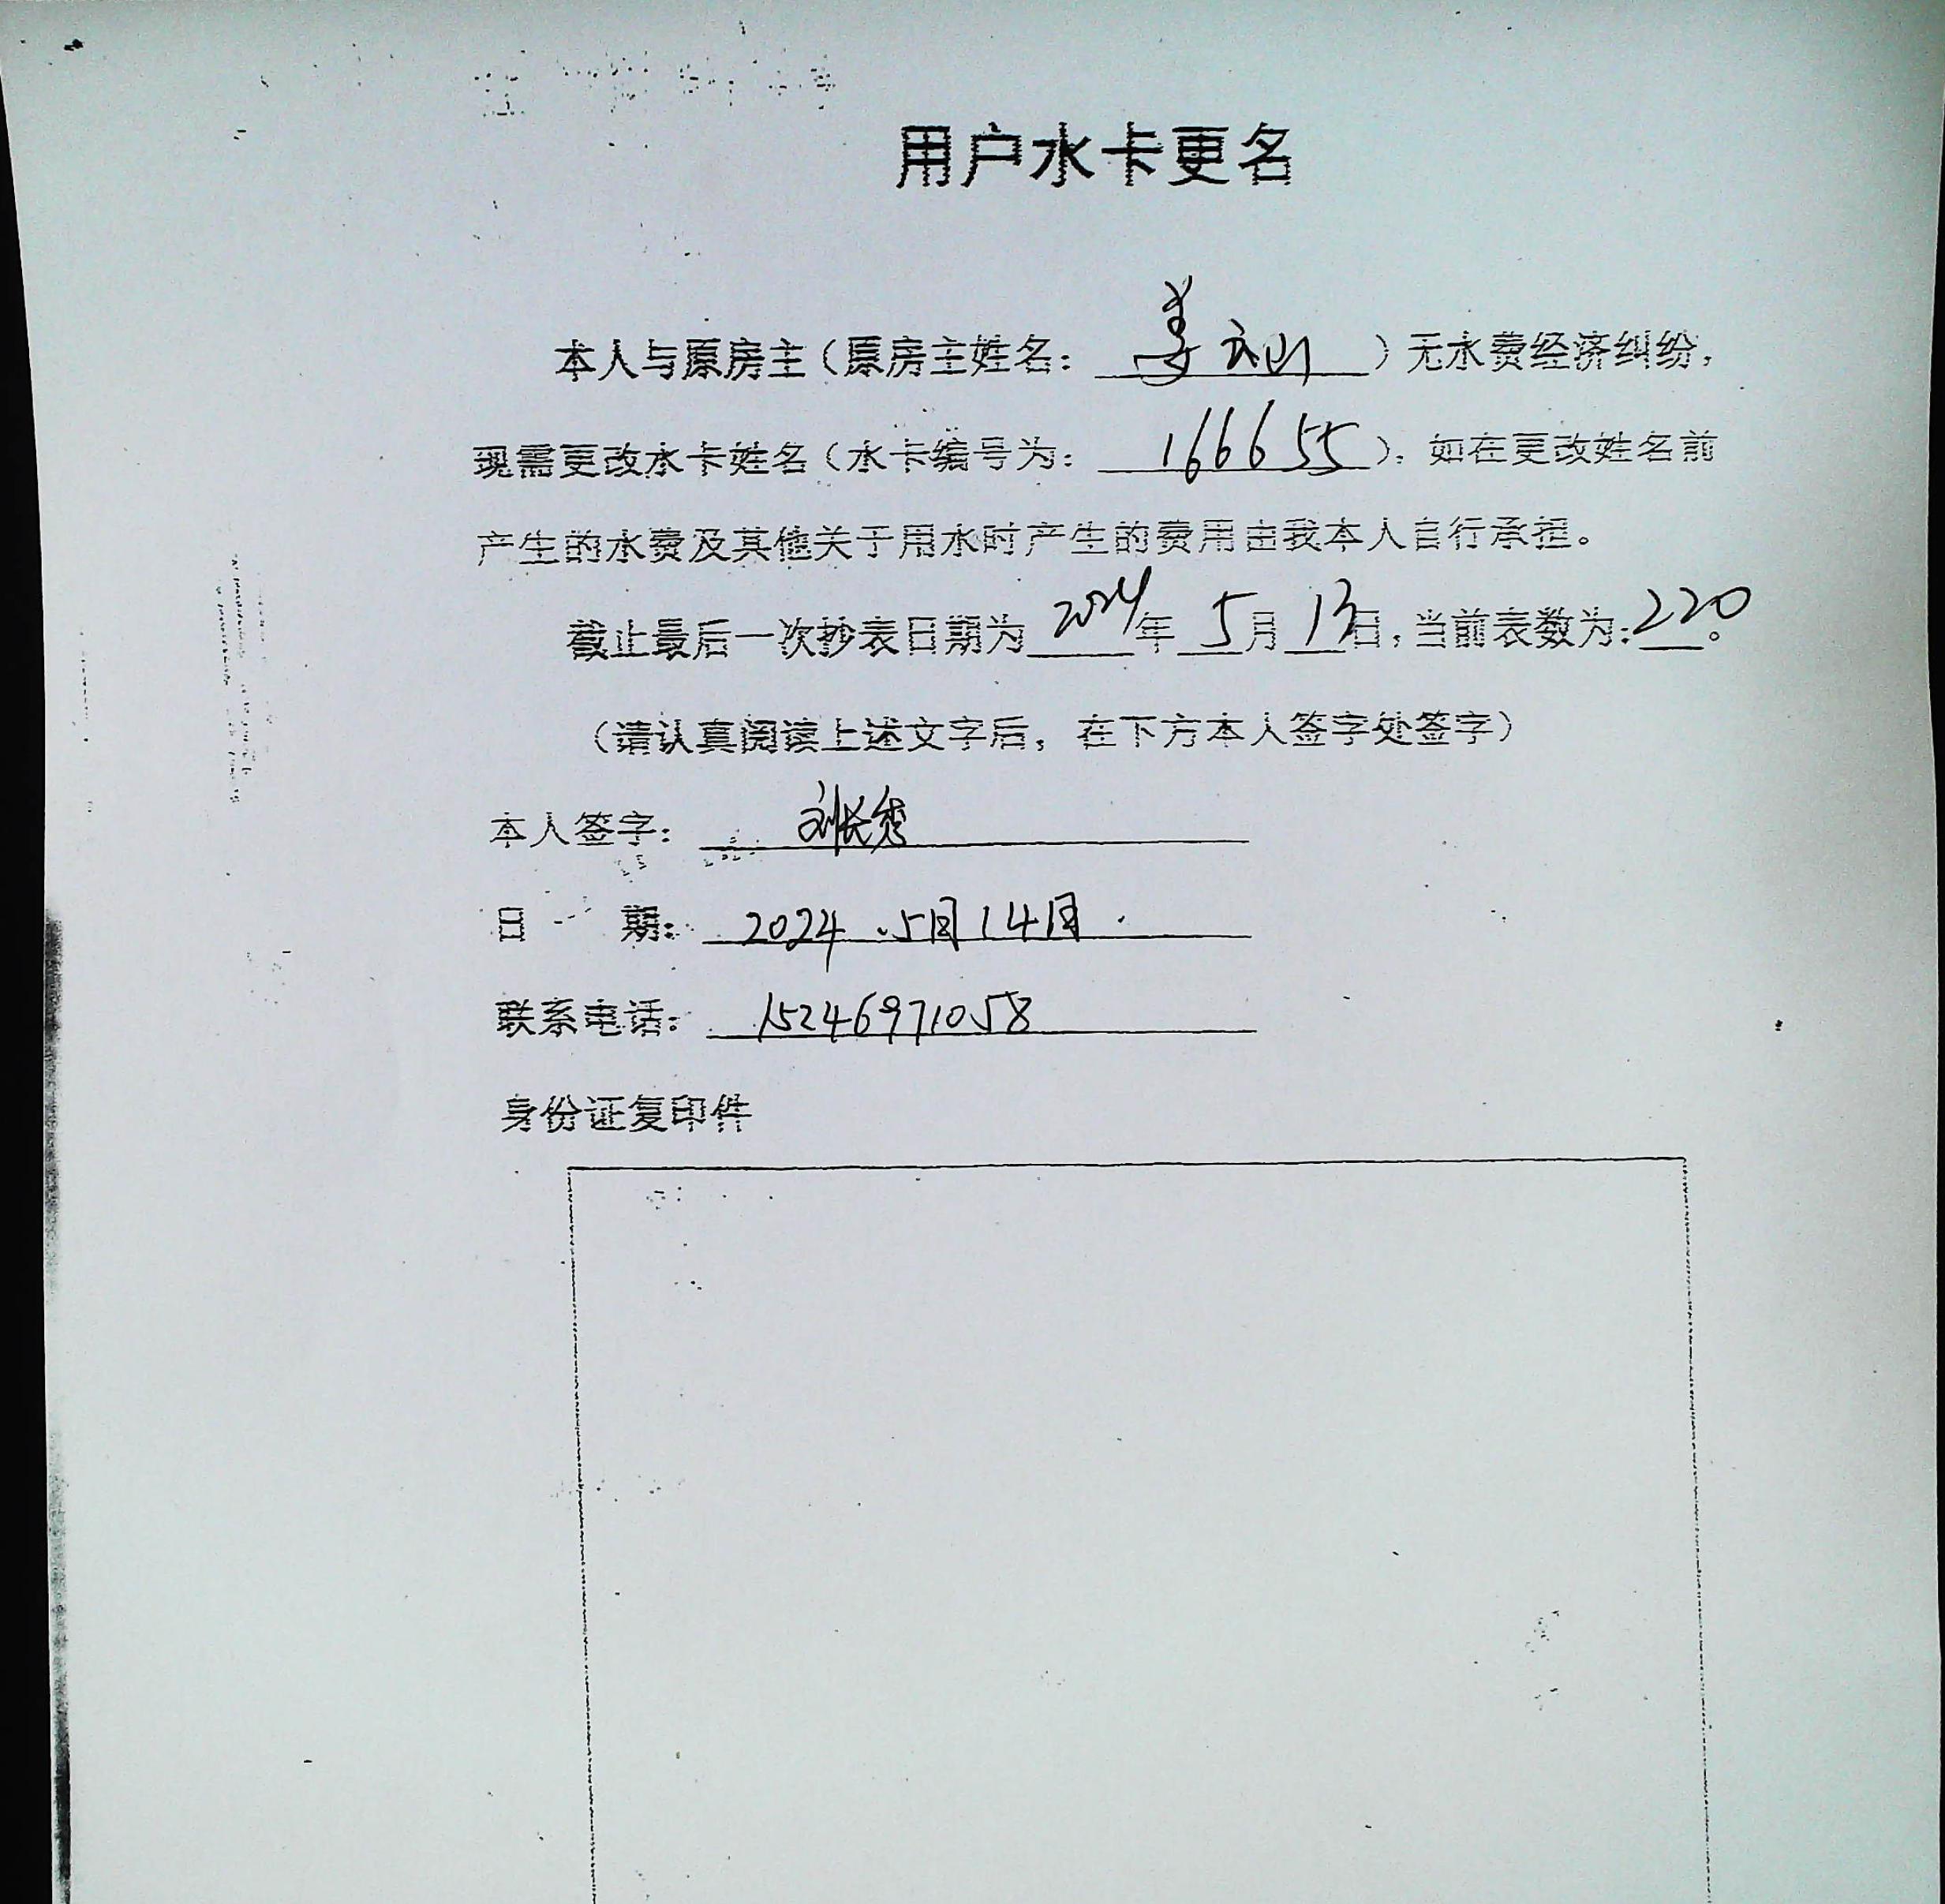 用户水卡更名
本人与原房主（原房主姓名：姜）无水费经济纠纷，
现需更改水卡姓名（水卡编号为：166655）；如在更改姓名前
产生的水费及其他关于用水时产生的费用由我本人自行承担。
截止最后一次抄表日期为2024年5月13日，当前表数为：220。
（请认真阅读上述文字后，在下方本人签字处签字）
本人签字：刘长秀
日 期：2024.5月14日.
联系电话：15246971058
身份证复印件